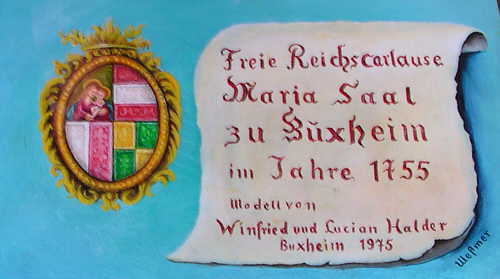 Freie Reichscartause
Maria Saal
zu Buxheim
im Jahre 1755
Modell von
Winfried und Lucian Halder
Buxheim 1975
Weßner